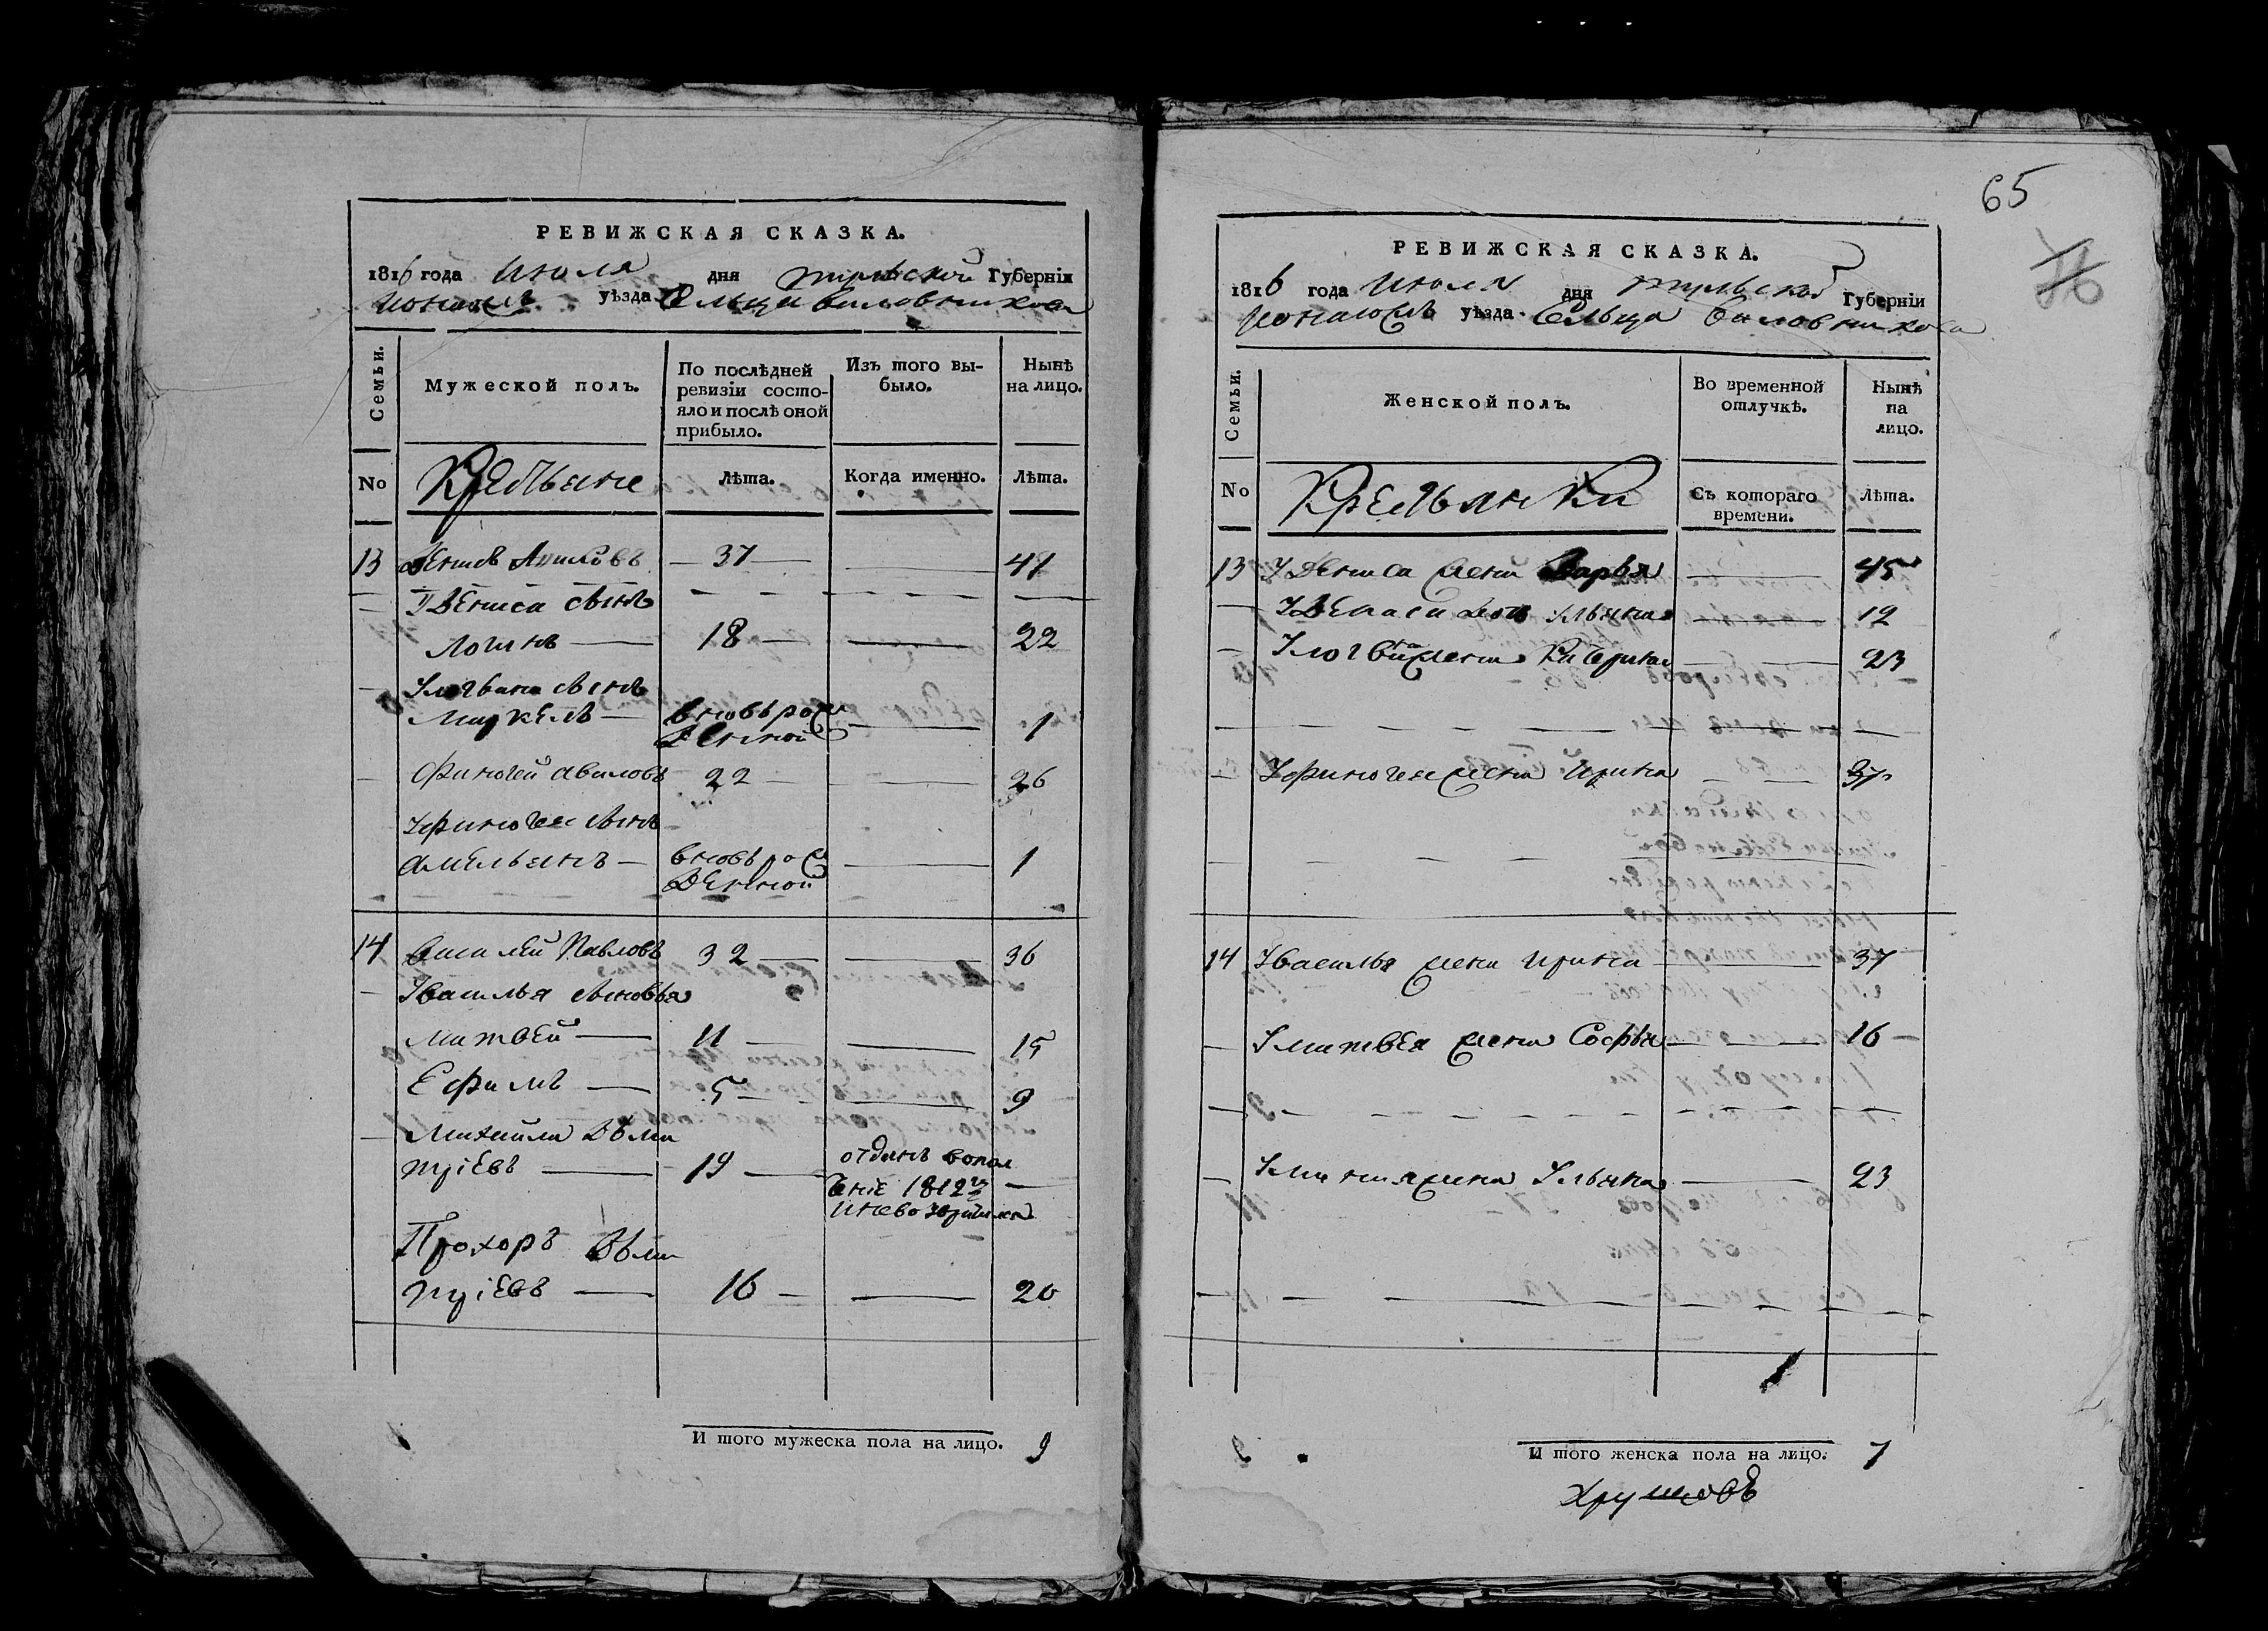 РЕВИЖСКАЯ СКАЗКА.
1816 года Июля дня тульской Губерніи
уѣзда Сельца
Семьи.
Мужеской полъ.
По послѣдней ревизіи состо-
яло и послѣ оной прибыло.
Изъ того вы-
было.
Нынѣ
на лицо.
No
Крестьяне
Лѣта.
Когда именно.
Лѣта.
13 Денисъ 37 41
У Дениса сынъ
Логинъ 18 22
сынъ
Маркелъ вновь рож
денной 1
Финогей 22 26
У Финогея сынъ
Амельянъ вновь рож
денной 1
14 Василей Павловъ 32 36
У Василья сыновья
Матвей 11 15
Ефимъ 5 9
Михайла Дѣми
тріевъ 19 отданъ вопол
ченіе 1812го
Прохоръ Дѣми
тріевъ 16 20
И того мужеска пола на лицо. 9
65
РЕВИЖСКАЯ СКАЗКА.
1816 года Июля дня тульской Губерніи
уѣзда Сельца
Семьи.
Женской полъ.
Во временной
отлучкѣ.
Нынѣ
на
лицо.
No
Крестьянки
Съ котораго
времени.
Лѣта.
13 У Дениса жена Дарья 45
Ульяна 12
жена Катерина 23
У Финогея жена Ирина 37
14 У Василья жена Ирина 37
У Матвея жена Софья 16
жена Ульяна 23
И того женска пола на лицо. 7
Хрущовъ